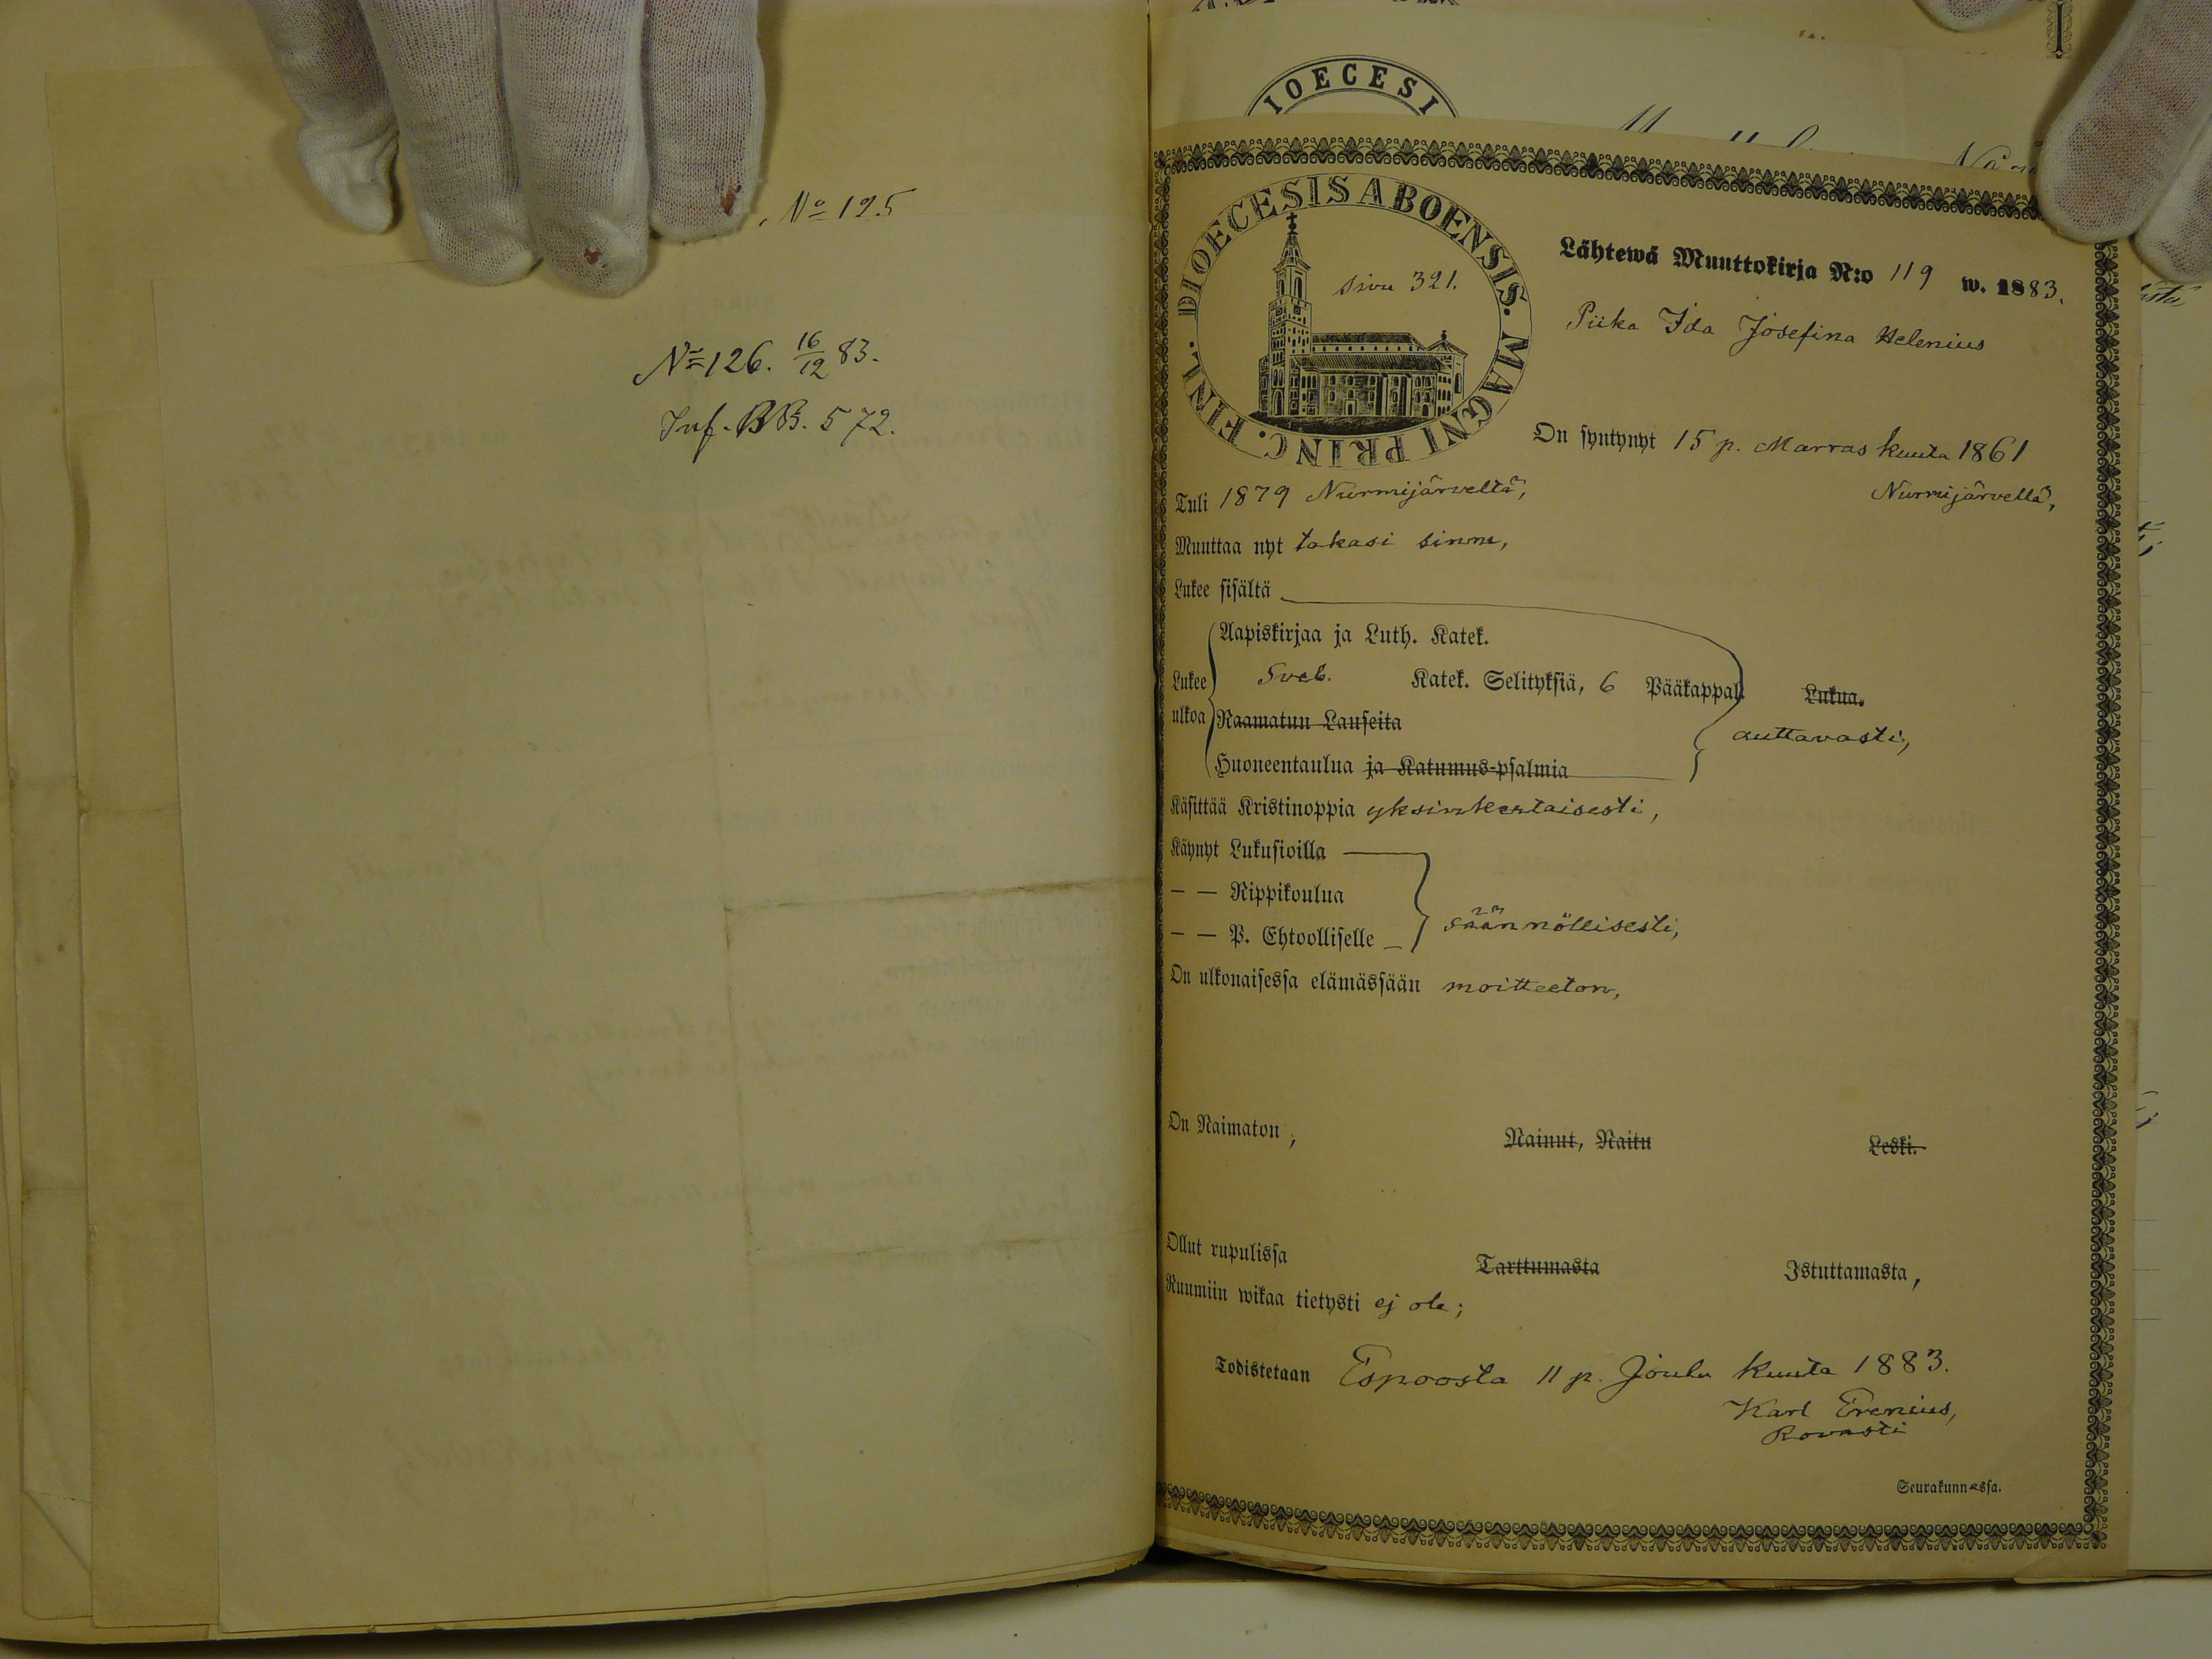 No 125
No 126. 16/12 83.
Inf. BB. 572.
IOECESI
DIOECESIS ABOENSIS. MAGNI PRINC. FINL.
sivu 321.
Lähtewä Muuttokirja N:o 119 w. 1883.
Piika Ida Josefina Helenius
On syntynyt 15 p. Marras kuuta 1861
Tuli 1879 Nurmijärveltä, Nurmijärvellä,
Muuttaa nyt takasi sinne,
Lukee sisältä
Aapiskirjaa ja Luth. Katek.
Lukee ulkoa Sveb. Katek. Selityksiä, 6 Pääkappal. Lukua.
Raamatun Lauseita auttavasti,
Huoneentaulua ja Katumus-psalmia
Käsittää Kristinoppia yksinkertaisesti,
Käynyt Lukusioilla
— — Rippikoulua
säännöllisesti,
— — P. Ehtoolliselle
On ulkonaisessa elämässään moitteeton,
On Naimaton, Nainut, Naitu Leski.
Ollut rupulissa Tarttumasta Istuttamasta,
Ruumiin wikaa tietysti ej ole;
Todistetaan Espoosta 11 p. Joulu kuuta 1883.
Karl Erenius,
Rovasti
Seurakunnassa.